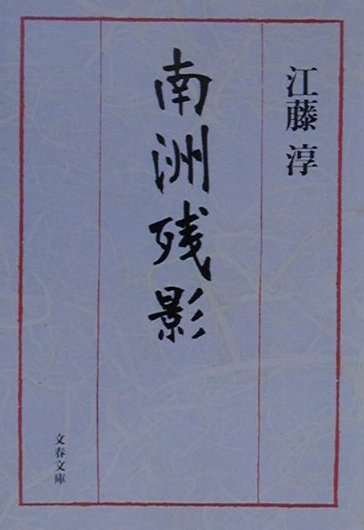 江藤淳
南洲残影
文春文庫